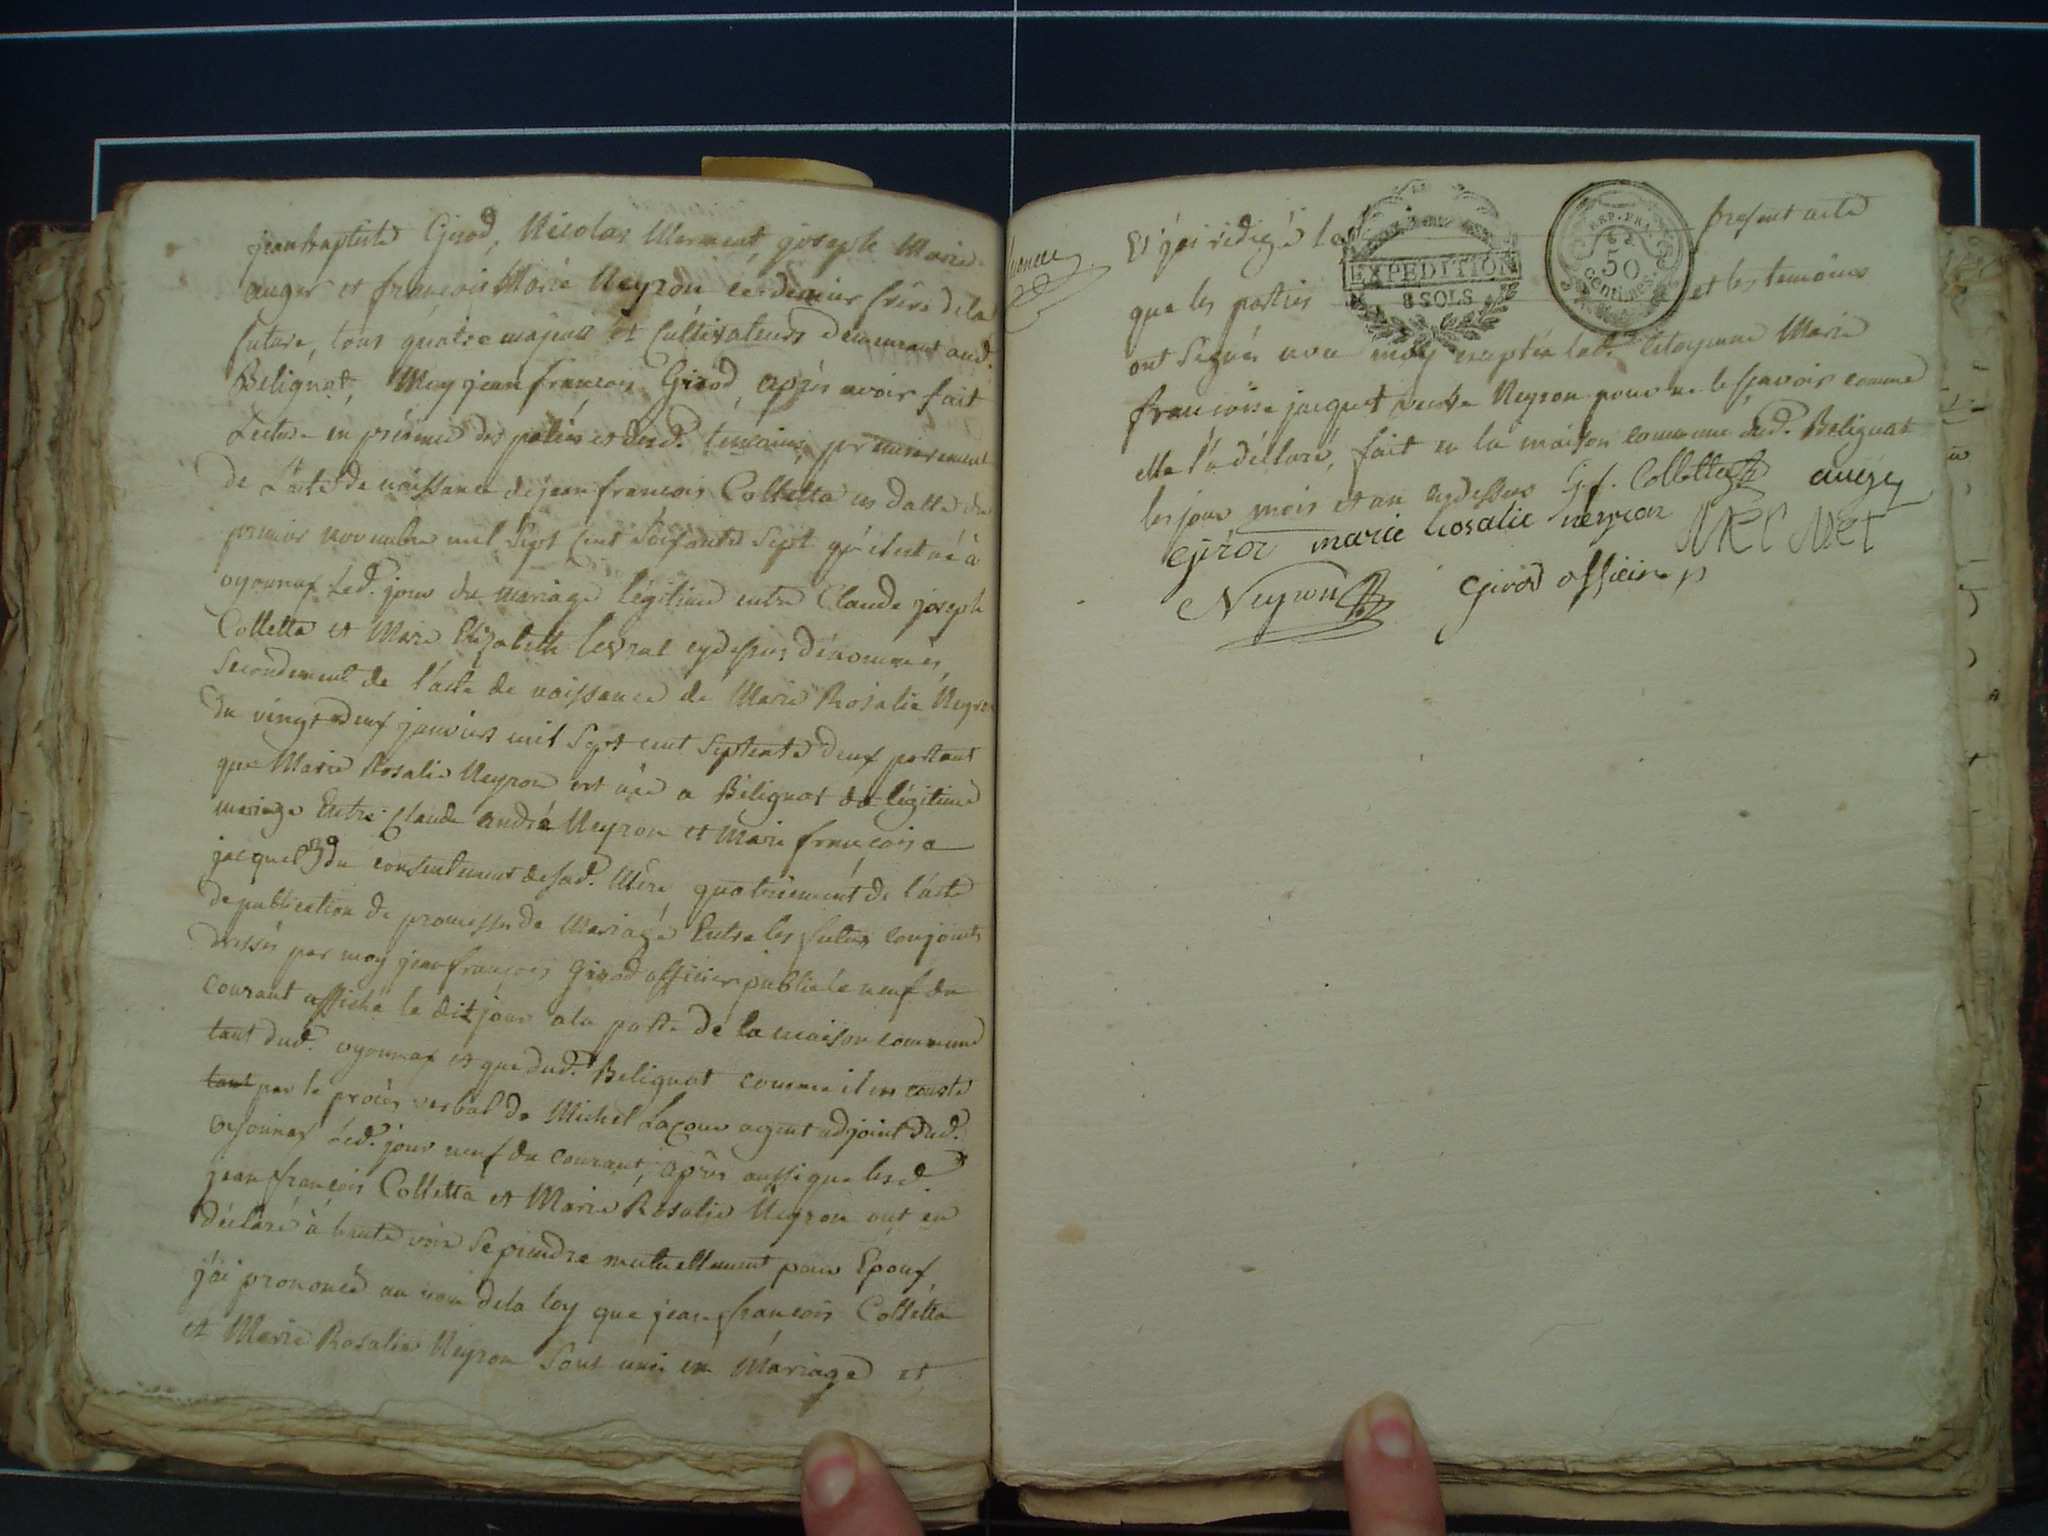 jeanbaptiste Girod, Nicolas Mermet, joseph Marie
auger et françois Marie Neyron ce dernier frère de la
future, tous quatre majeurs et Cultivateurs demeurant aud.
Belignat, Moy jean françois Girod, après avoir fait
Lecture en présence des parties et desd. temoins, premierement
de L'acte de naissance de jean francois Colletta en datte du
premier novembre mil Sept Cent Soixante Sept qu'il est né à
oyonnax led. jour du mariage légitime entre Claude joseph
Colletta et Marie Elizabeth levrat cydessus dénommés,
Secondement de l'acte de naissance de Marie Rosalie Neyron
du vingt deux janvier mil Sept cent Septente deux portant
que Marie Rosalie Neyron est née a Bélignat du légitime
mariage Entre Claude andré Neyron et Marie françoise
jacquet 3º du consentement de sad. Mère, quatriement de l'acte
de publication de promesses de Mariage Entre les futurs conjoints
dressés par moy jean françois Girod officier public le neuf du
Courant affiché le dit jour a la porte de la maison commune
tant dud. oyonnax et que dud. Belignat comme il en conste
tant par le procès verbal de Michel Laçour agent adjoint dud.
oyonnax led. jour neuf du courant, après aussi que lesd.
jean françois Colletta et Marie Rosalie Neyron ont en
déclaré à haute voix Se prendre mutuellement pour Epoux,
j'ai prononcé au nom de la loy que jean françois Colletta
et Marie Rosalie Neyron Sont unis en Mariage et
Et j'ai rédigé le présent acte
EXPEDITION
8 SOLS
REP. FRA.
50
Centimes
que les parties et les temoins
ont Signés avec moy exceptée lad. Citoyenne Marie
françoise jacquet veuve Neyron pour ne le sçavoir comme
elle l'a déclaré, fait en la maison commune dud. Belignat
les jour mois et an cydessus J. f. Colletta auger
Girod marie Rosalie neyron MerMet
Neyron Girod officier p